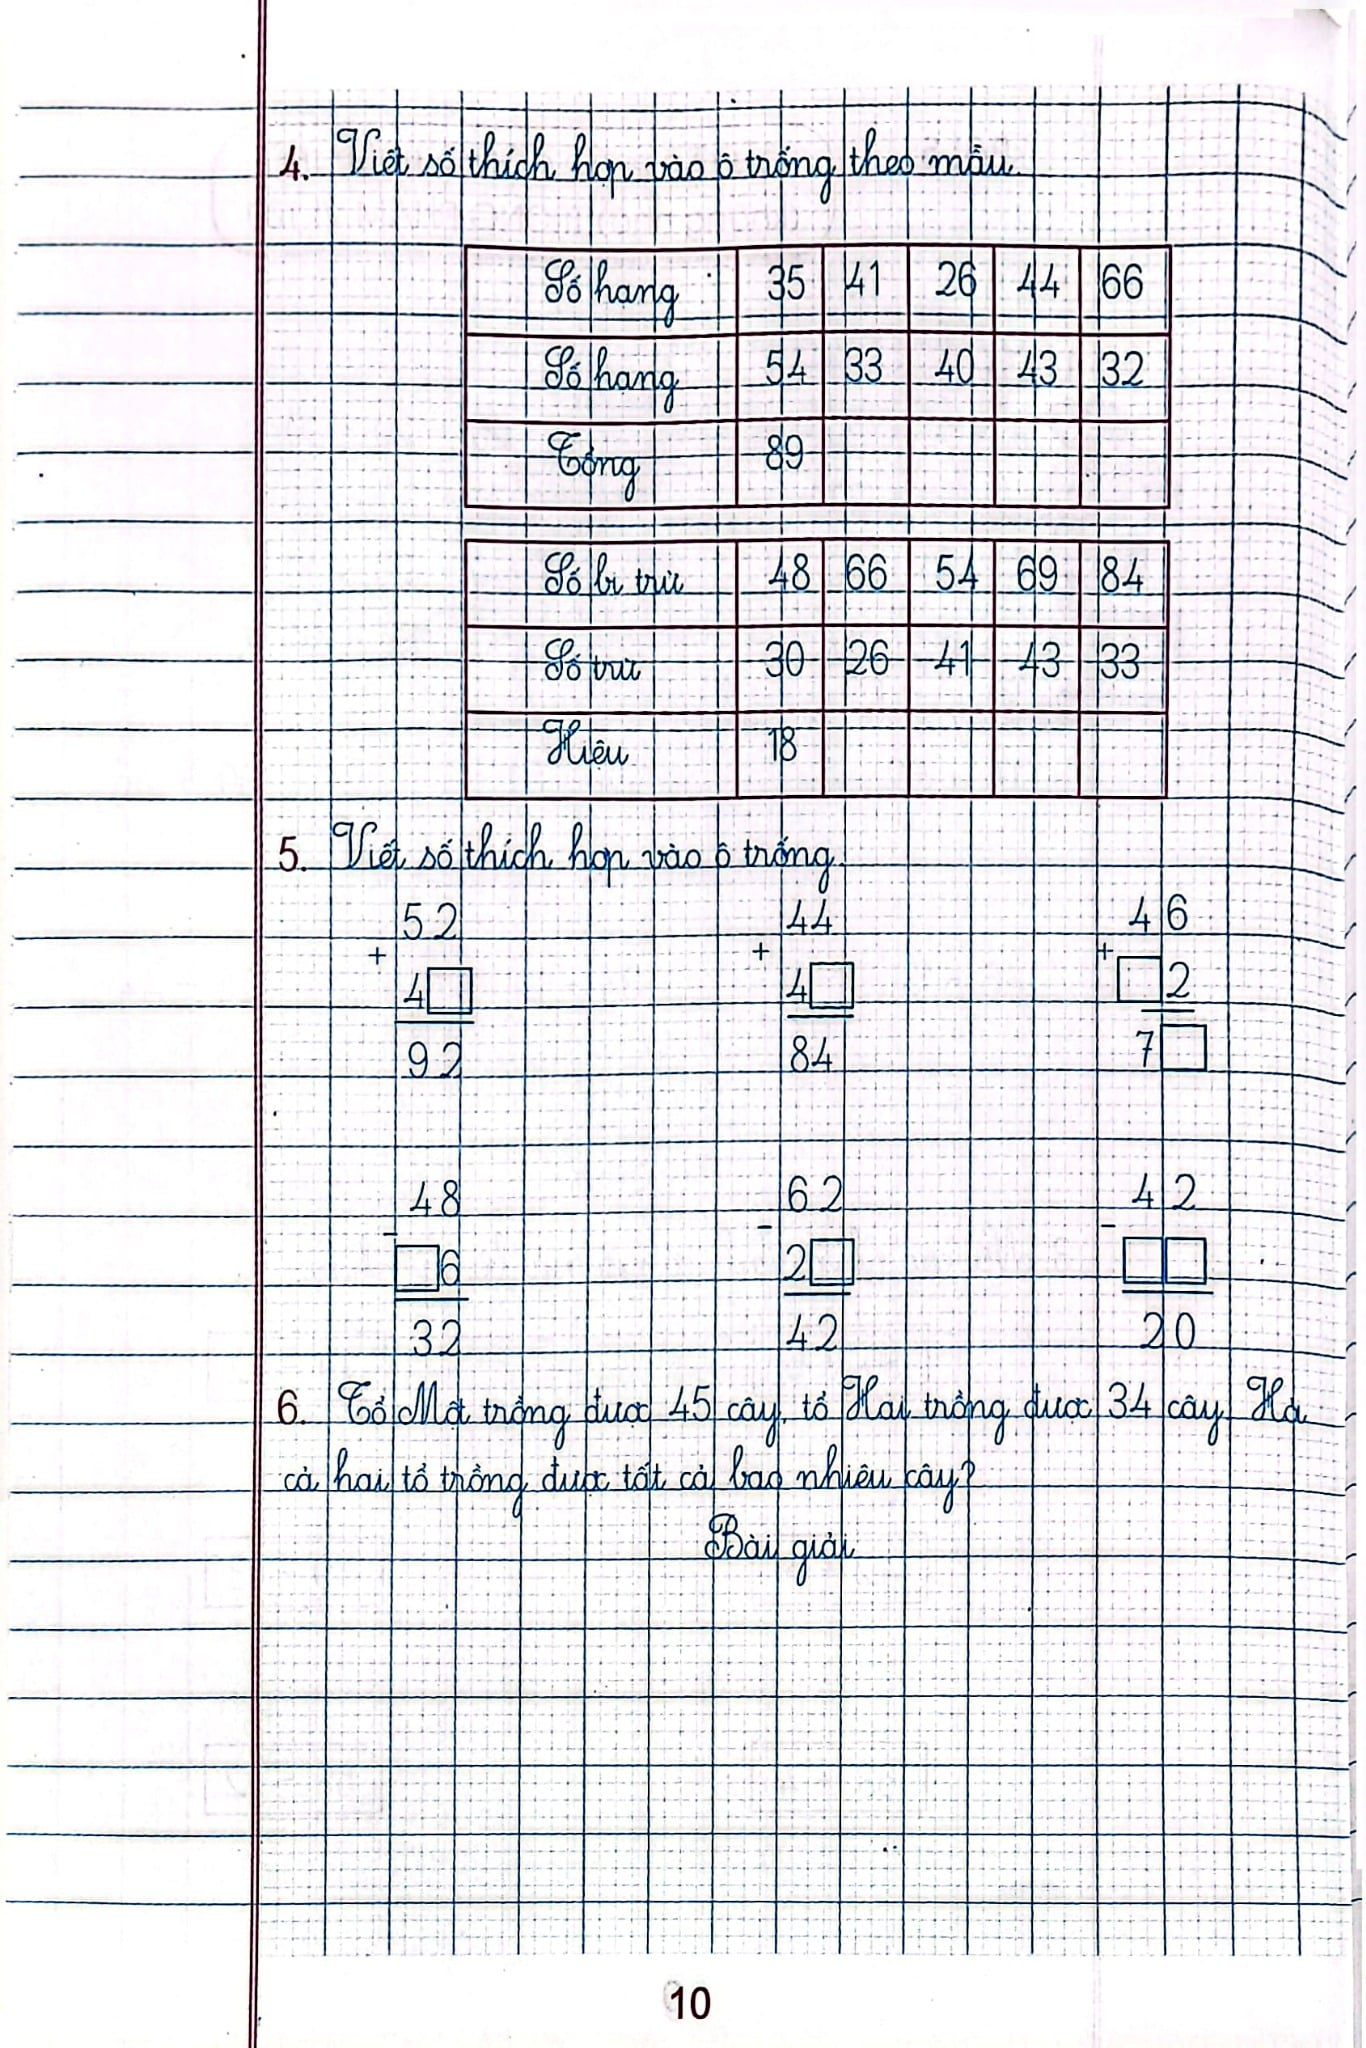 4. Viết số thích hợp vào ô trống theo mẫu.
Số hạng 35 41 26 44 66
Số hạng 54 33 40 43 32
Tổng 89
Số bị trừ 48 66 54 69 84
Số trừ 30 26 41 43 33
Hiệu 18
5. Viết số thích hợp vào ô trống.
52 44 46
+ + +
4□ 4□ □2
92 84 7□
48 62 42
- - -
□6 2□ □□
32 42 20
6. Tổ Một trồng được 45 cây, tổ Hai trồng được 34 cây. Hỏi
cả hai tổ trồng được tất cả bao nhiêu cây?
Bài giải
10